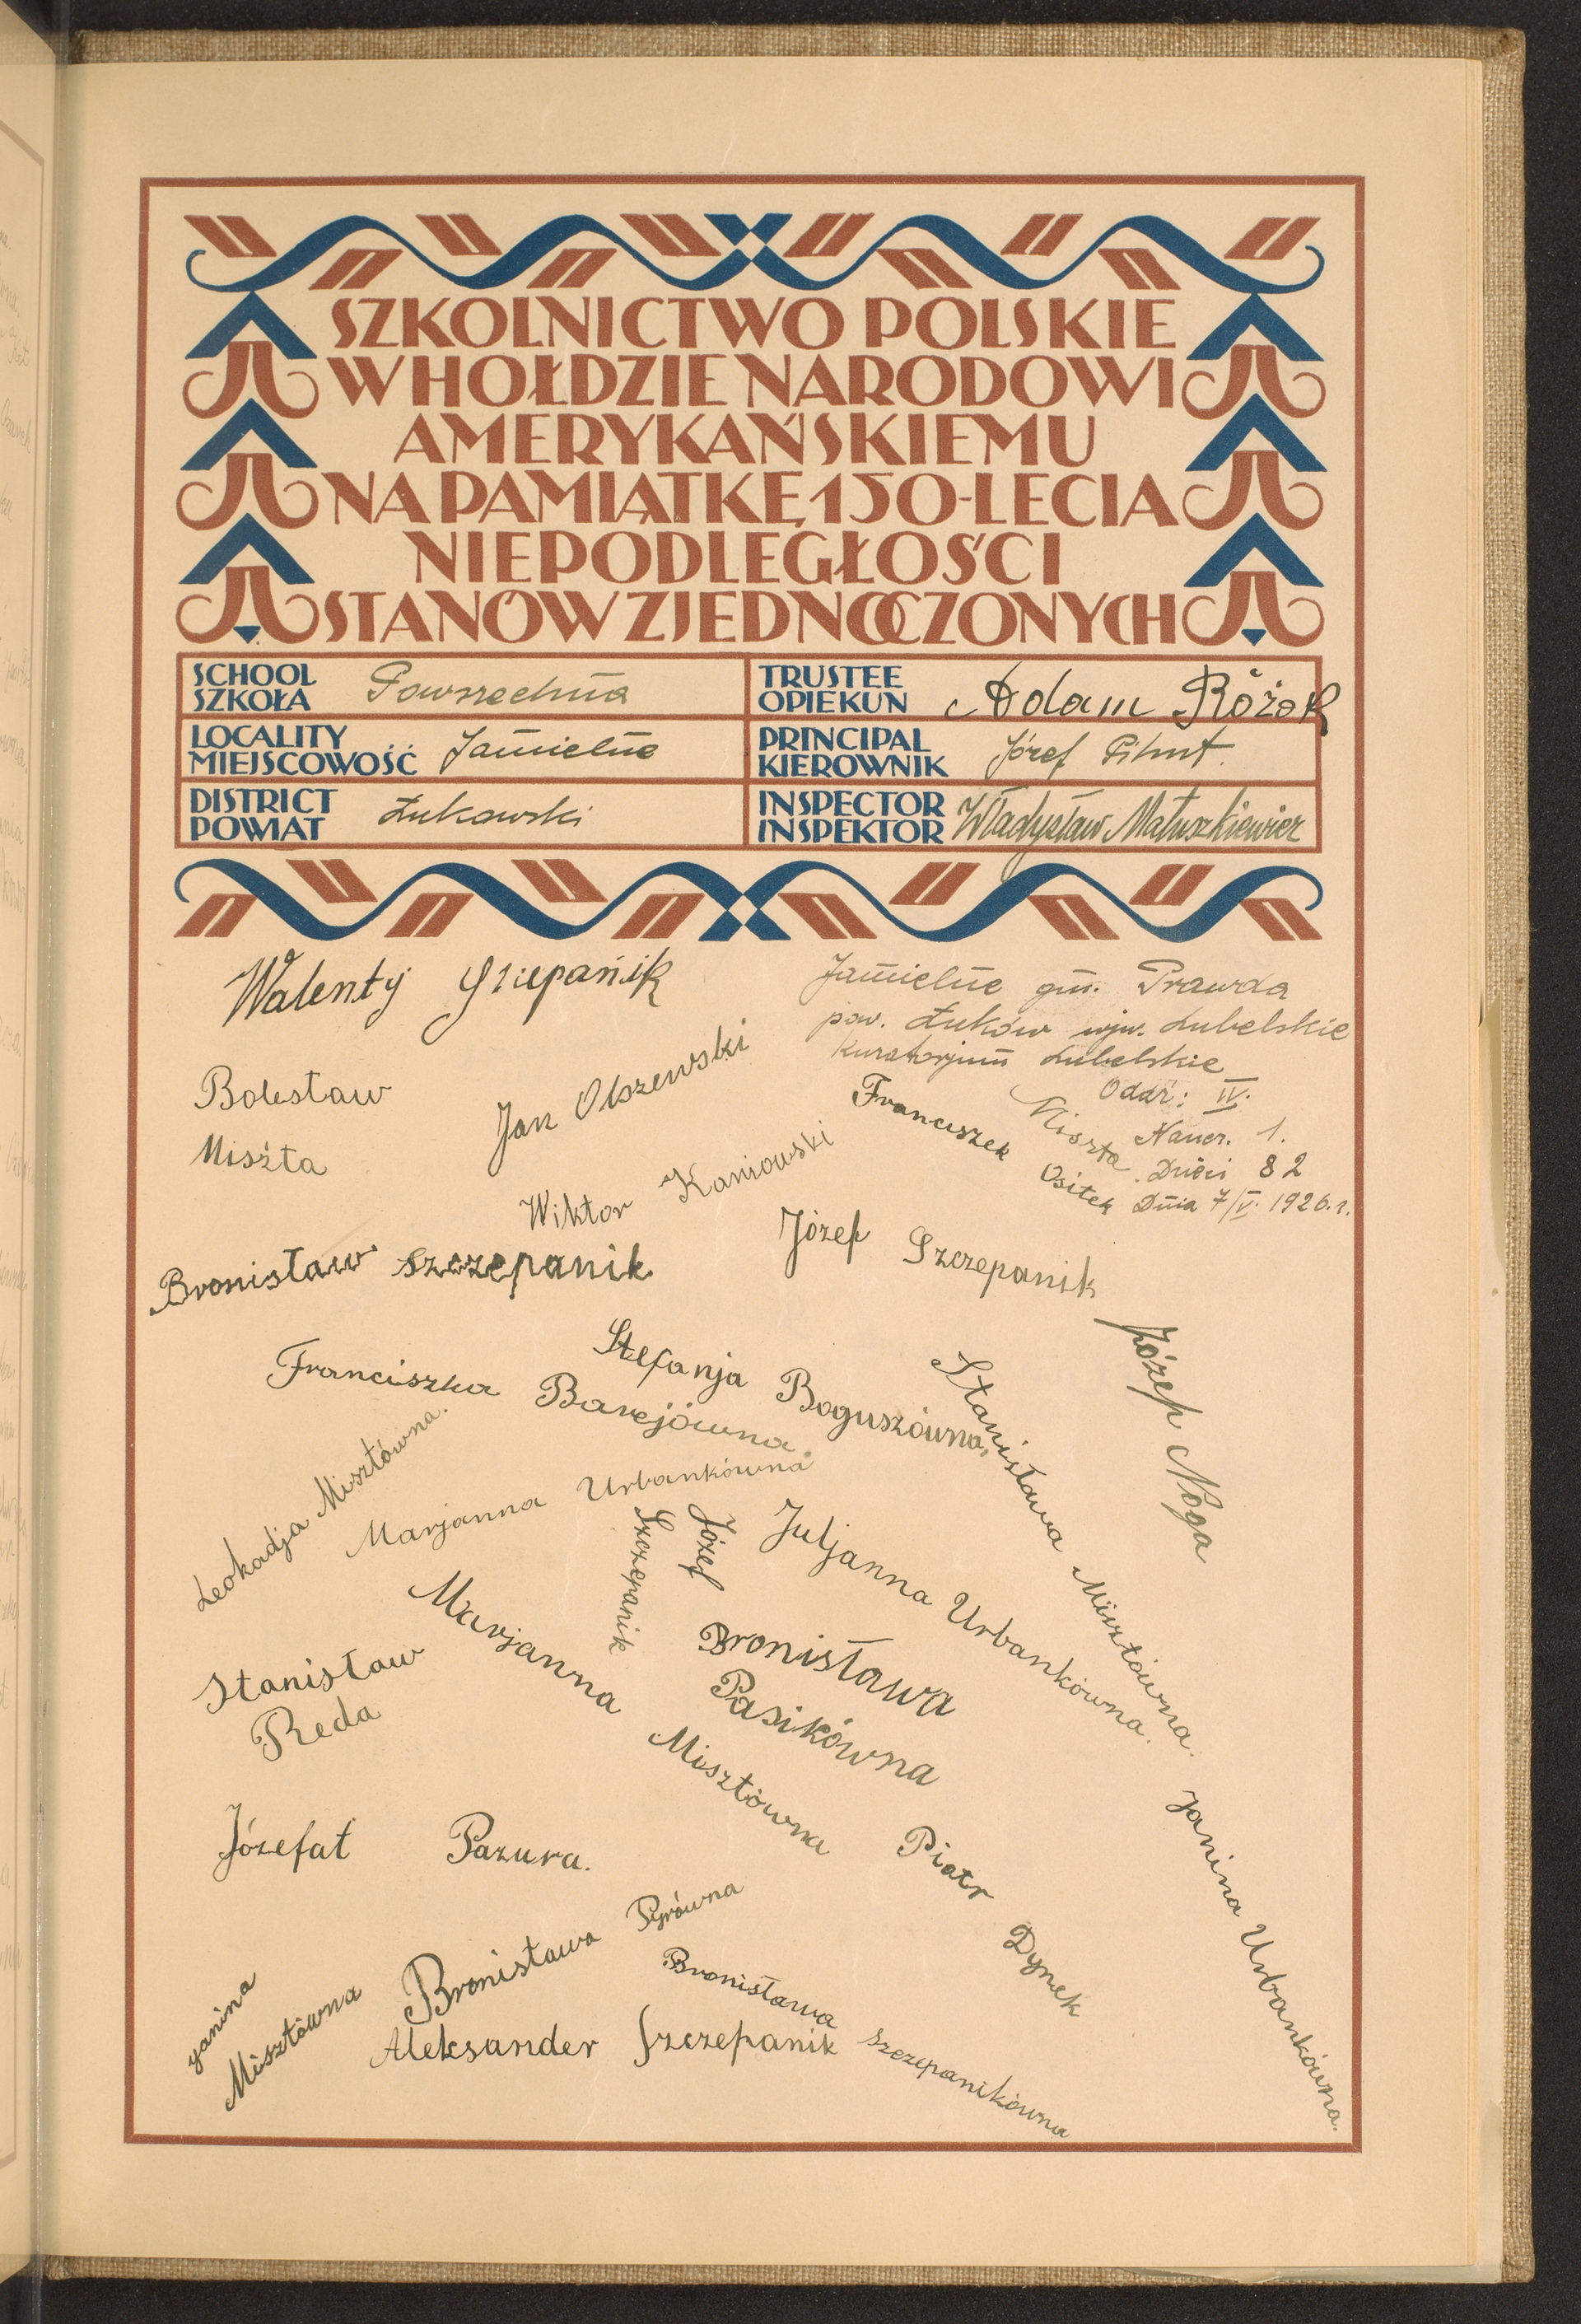 SZKOLNICTWO POLSKIE
W HOŁDZIE NARODOWI
AMERYKAŃSKIEMU
NA PAMIĄTKĘ 150-LECIA
NIEPODLEGŁOŚCI
STANÓW ZJEDNOCZONYCH
SCHOOL
SZKOŁA Powszechna
TRUSTEE
OPIEKUN Adam Różok
LOCALITY
MIEJSCOWOŚĆ Jamielne
PRINCIPAL
KIEROWNIK Józef
DISTRICT
POWIAT Łukowski
INSPECTOR
INSPEKTOR Władysław Matuszkiewicz
Walenty
Jamielne gm. Prawda
pow. Łuków wjw. Lubelskie
Kuratorjum Lubelskie
Oddz: IV.
Naucz. 1.
Dzieci 82
Dnia 7/V. 1926.r.
Bolesław
Miszta
Jan Olszewski
Franciszek Ositek
Miszta
Wiktor Kaniowski
Józef Szczepanik
Bronisław Szczepanik
Stefanja Boguszówna
Franciszka Barejówna.
Józef Noga
Stanisława Misztówna.
Leokadja Misztówna.
Marjanna Urbankówna
Józef
Szczepanik
Juljanna Urbankówna.
Marjanna Misztówna
Bronisława
Pasikówna
Stanisław
Reda
Józefat Pazura.
Piotr Dynek
Janina Urbankówna.
Bronisława Pyrówna
Janina
Misztówna
Bronisława Szczepanikówna
Aleksander Szczepanik